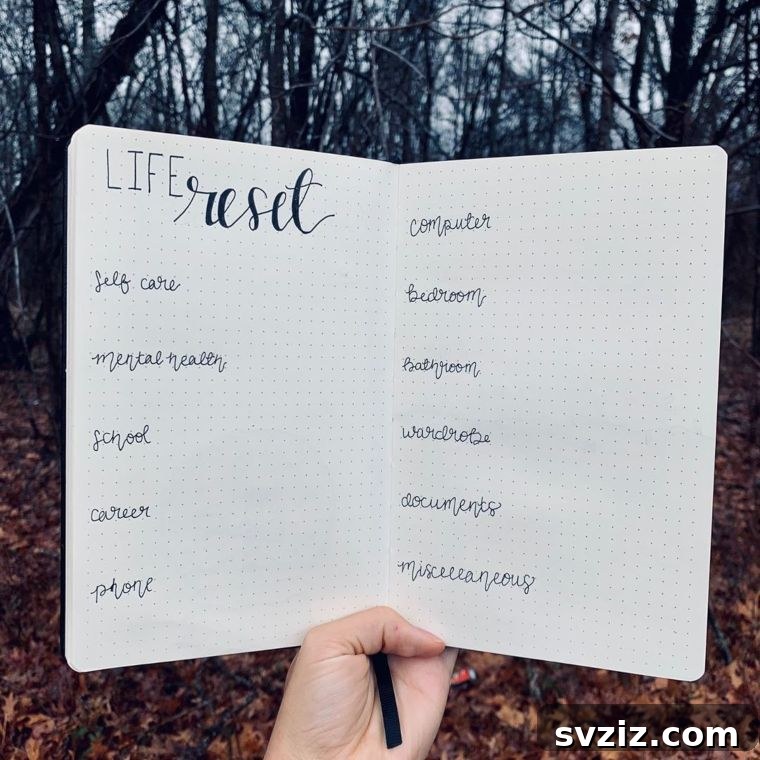 LIFE reset
self care
mental health
school
career
phone
computer
bedroom
bathroom
wardrobe
documents
miscellaneous
svziz.com